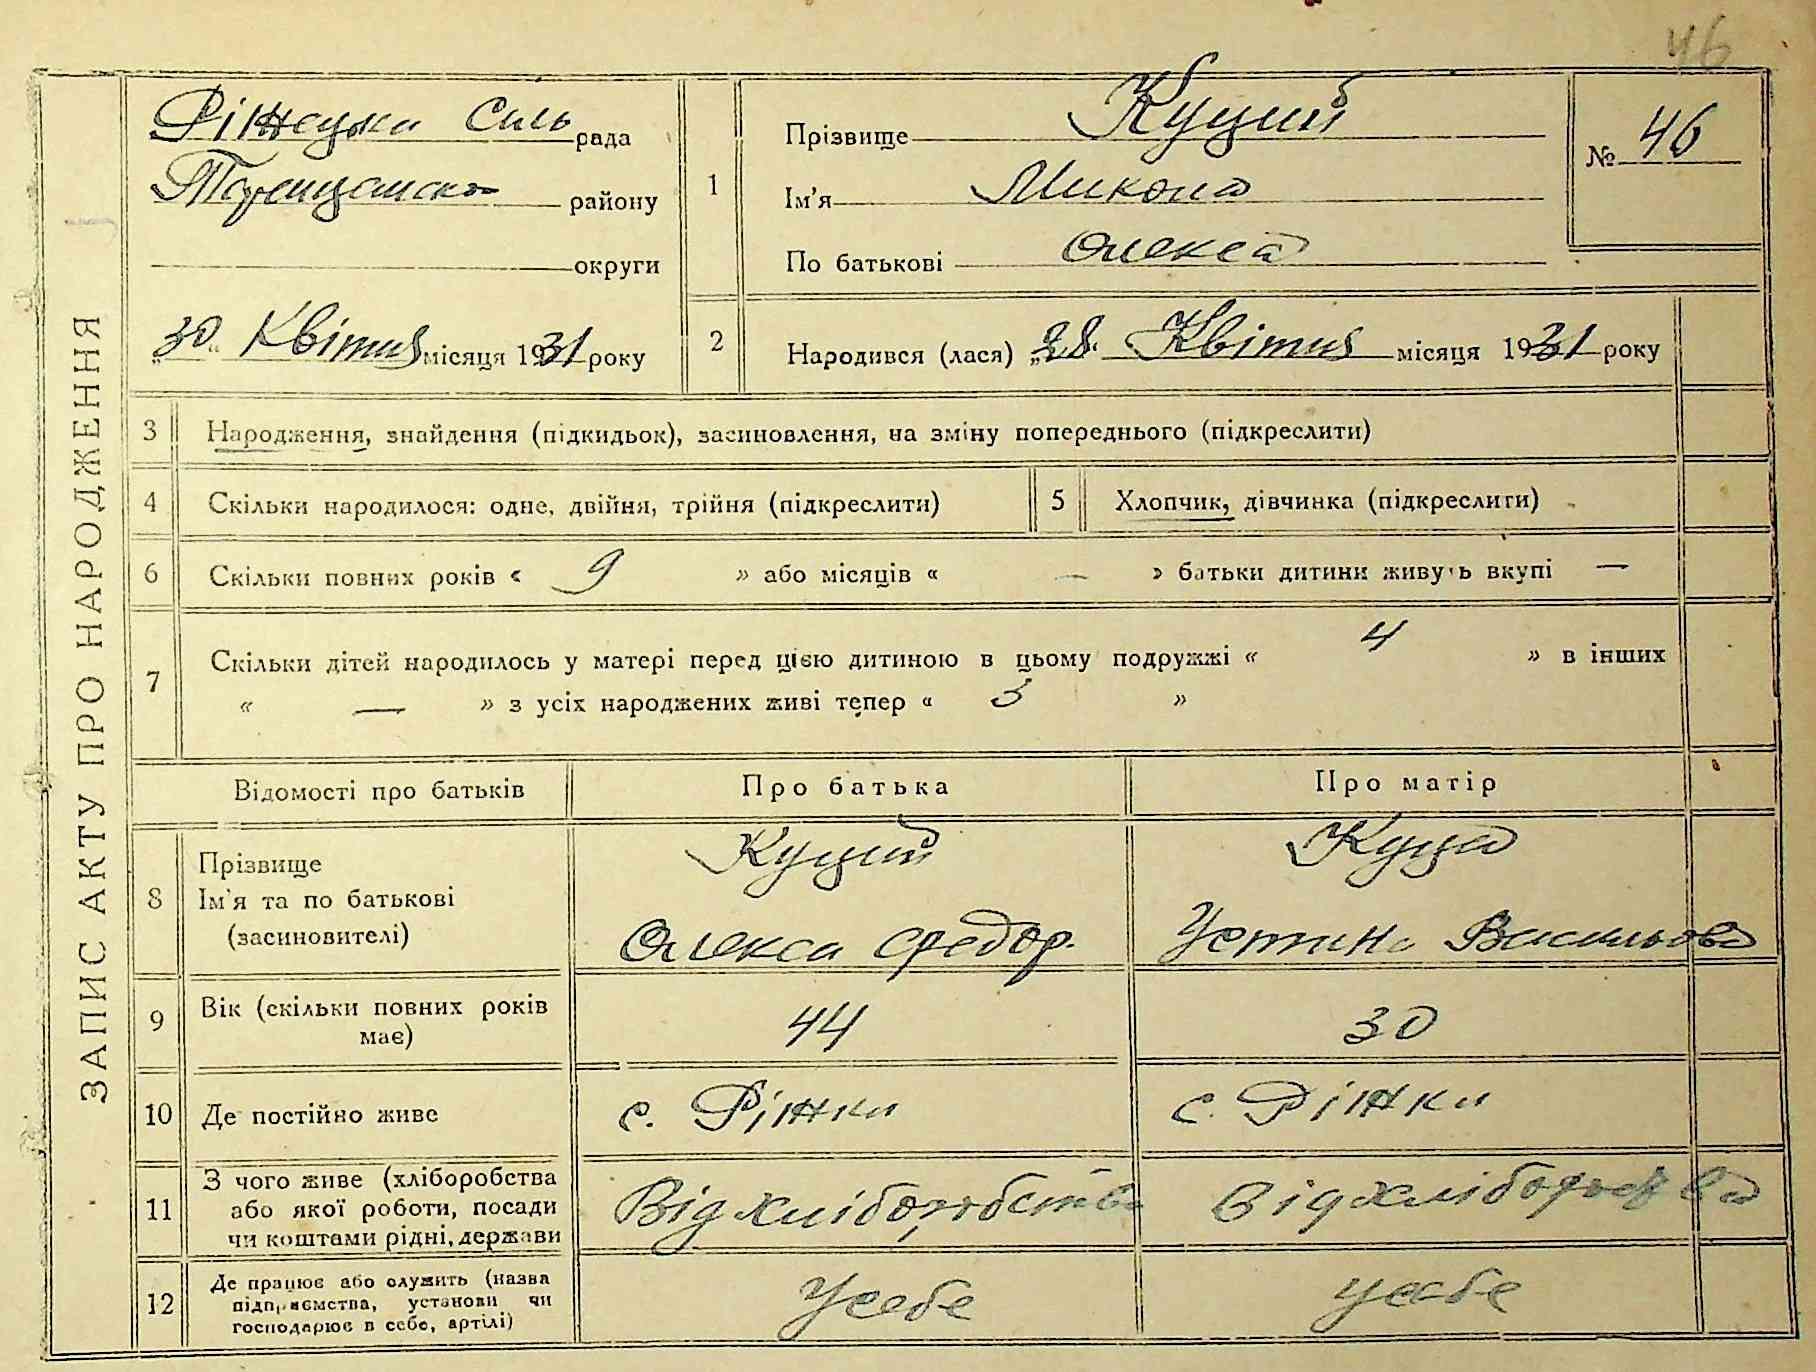 46
ЗАПИС АКТУ ПРО НАРОДЖЕННЯ
Ріжецька Силь рада
району
округи
„30“ Квітня місяця 1931 року
1
Прізвище Куций
Ім'я Микола
По батькові Олексѣ
№ 46
2
Народився (лася) „28“ Квітня місяця 1931 року
3 Народження, знайдення (підкидьок), засиновлення, на зміну попереднього (підкреслити)
4 Скільки народилося: одне, двійня, трійня (підкреслити)
5 Хлопчик, дівчинка (підкреслити)
6 Скільки повних років « 9 » або місяців « — » батьки дитини живуть вкупі —
7 Скільки дітей народилось у матері перед цією дитиною в цьому подружжі « 4 » в інших
« — » з усіх народжених живі тепер « 3 »
Відомості про батьків Про батька Про матір
8 Прізвище Ім'я та по батькові (засиновителі)
Куций Куца
Олекса Федор. Устина Васильова
9 Вік (скільки повних років має) 44 30
10 Де постійно живе с. Ріжки с. Ріжки
11 З чого живе (хліборобства або якої роботи, посади чи коштами рідні, держави
Від хліборобства від хліборобства
12 Де працює або служить (назва підприємства, установи чи господарює в себе, артілі)
Усебе усебе